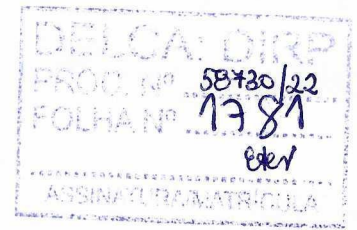 DELCA: DIRP
PROC. Nº 58730/22
FOLHA Nº 1781
ASSINATURA/MATRÍCULA